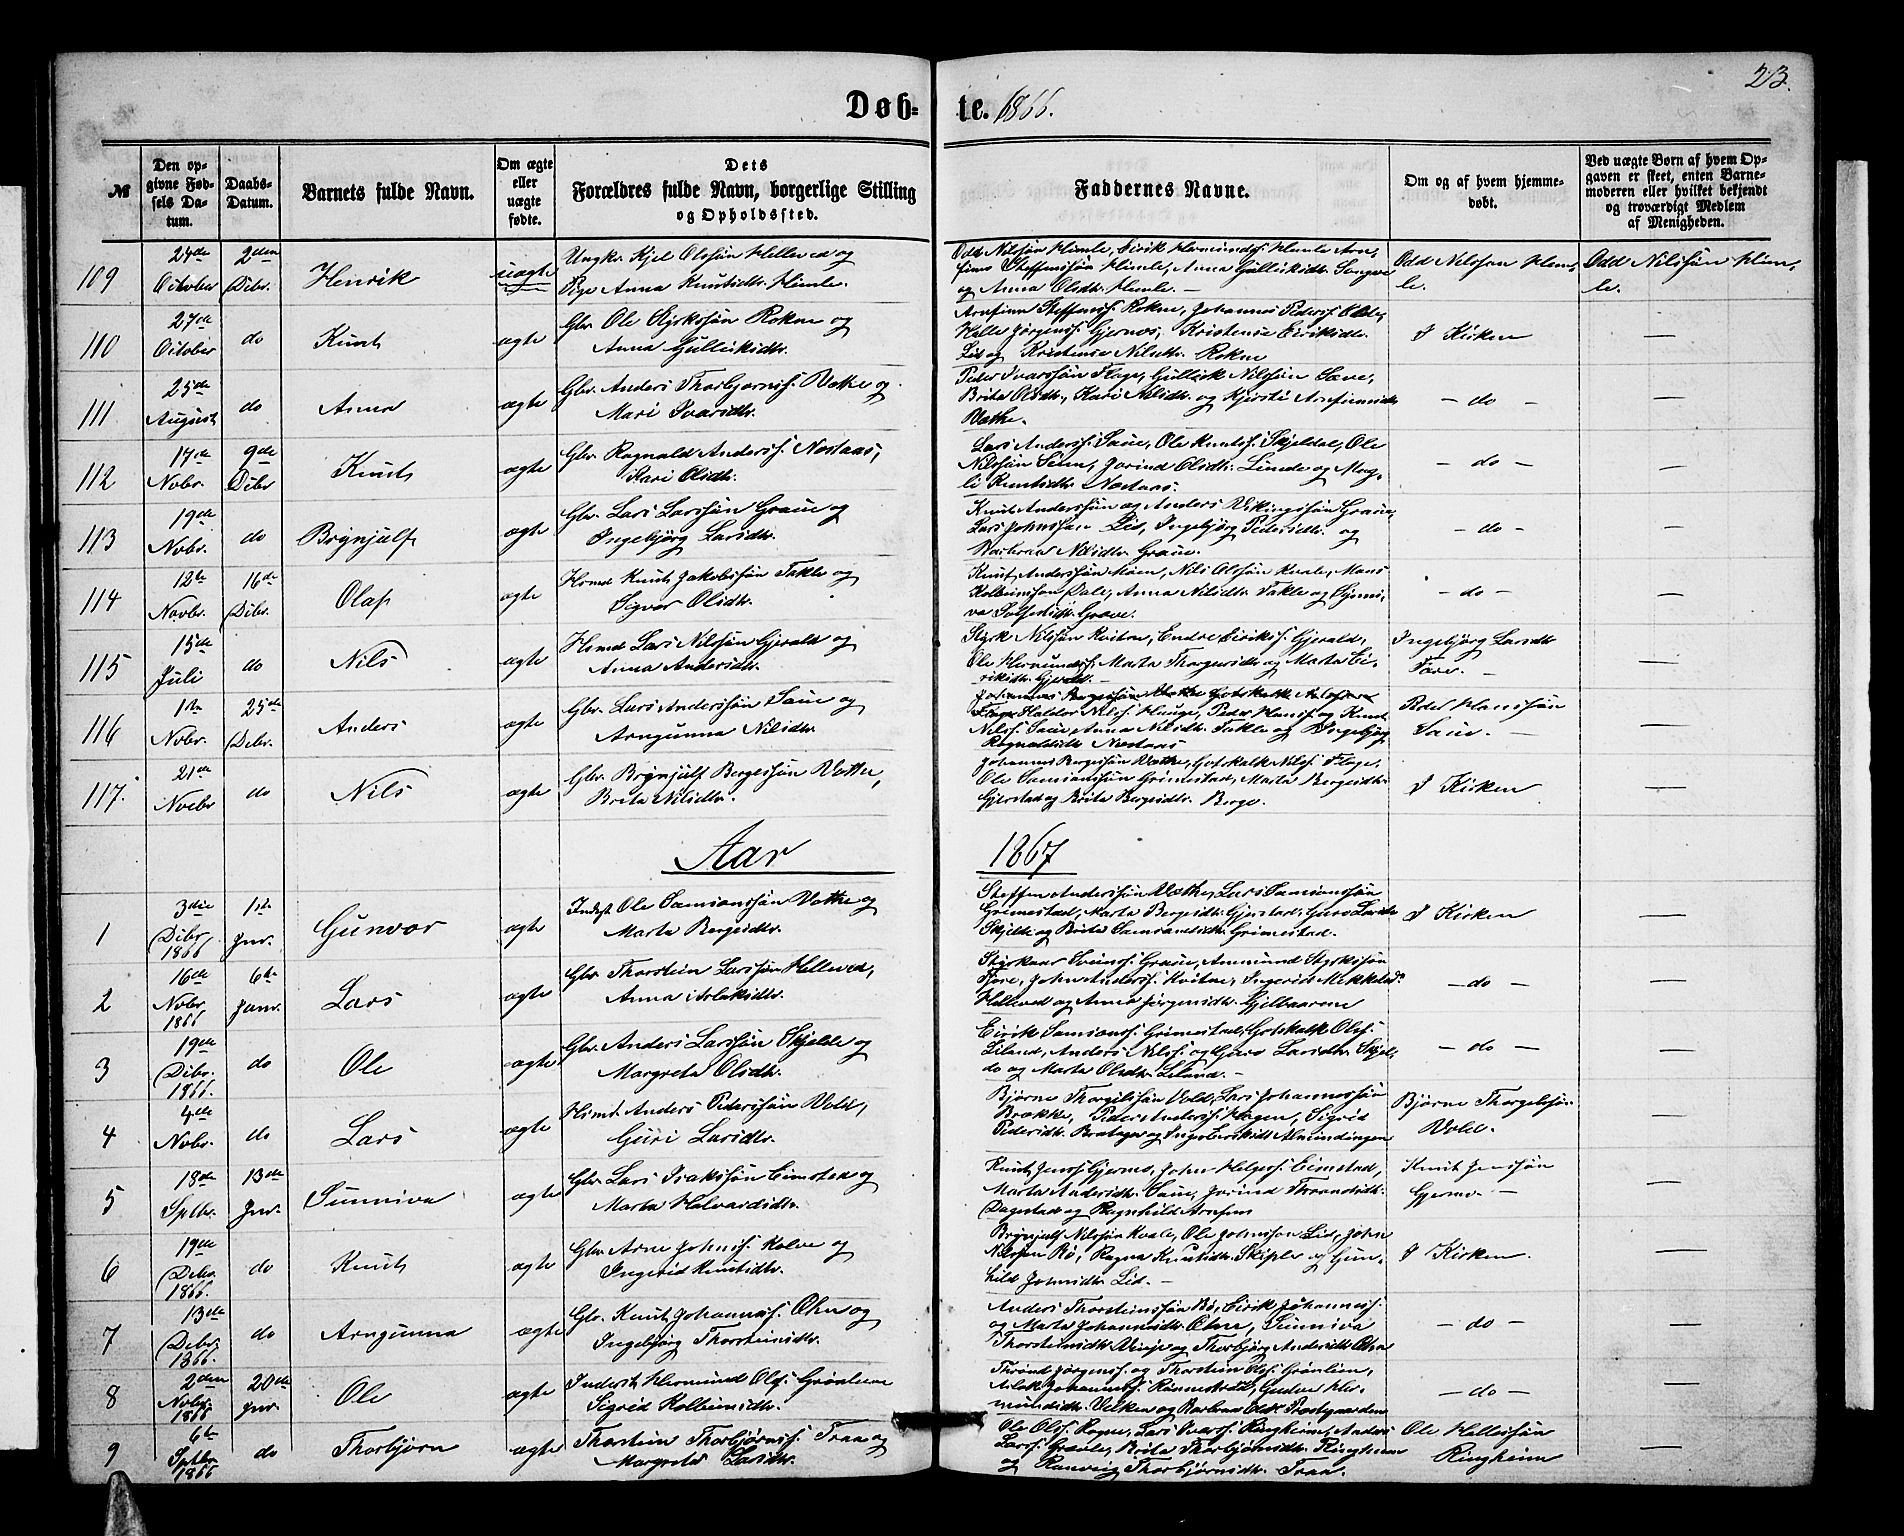 23.
Døb-
te. 1866.
№
Den op-
givne Fød-
sels Da-
tum.
Daabs-
Datum.
Barnets fulde Navn.
Om ægte
eller
uægte
fødte.
Dets
Forældres fulde Navn, borgerlige Stilling
og Opholdssted.
Faddernes Navne.
Om og af hvem hjemme-
døbt.
Ved uægte Børn af hvem Op-
gaven er skeet, enten Barne-
moderen eller hvilket bekjendt
og troværdigt Medlem
af Menigheden.
109
October
2den
Dcbr.
Henrik
uægte
Ungk. Kjel Olssøn Helleved og
Pige Anna Knutsdtr. Himle.
Odd Nilssøn Himle, Eirik Hermunds. Himle Arn-
finn Steffenssøn Himle, Anna Gulliksdtr.
og Anna Olsdtr. Himle. —
Odd Nilssøn Him-
le.
Odd Nilssøn Him-
le.
110
27de
October
do
Knut
ægte
Gbr. Ole Styrkssøn Rokne og
Anna Gulliksdtr.
Arnfinn Steffens. Rokne, Johannes Peders.
Helle Jørgens. Gjernes, Kristense Eiriksdtr.
Lid og Kristense Nilsdtr. Rokne
I Kirken
—
111
25de
August
do
Anna
ægte
Gbr. Anders Thorbjørns. Vethe og
Mari Ivarsdtr.
Peder Ivarssøn Flage, Gullick Nilssøn Saue,
Brita Olsdtr., Kari Nilsdtr. og Kjersti Arnfinnsdtr.
Vethe.
— do —
—
112
17de
Nobr.
9de
Dcbr
Knut
ægte
Gbr. Ragnald Anders. Nestaas,
Kari Olsdtr.
Lars Anders. Saue, Ole Knuts. Skjeldal, Ole
Nilssøn Seim, Jorind Olsdtr. Linde og Mag-
li Knutsdtr. Nestaas.
— do —
—
113
19de
Nobr.
do
Brynjulf
ægte
Gbr. Lars Larssøn Graue og
Ingebjørg Larsdtr.
Knut Anderssøn og Anders Vikingssøn Graue,
Lars Johnssøn Lid, Ingebjørg Pedersdtr. og
Barbra Nilsdtr. Graue.
— do —
—
114
12te
Novbr.
16de
Dcbr.
Olaf
ægte
Hsmd Knut Jakobssøn Takle og
Sigvor Olsdtr.
Knut Anderssøn Møen, Nils Olssøn Kvale, Mons
Kolbeinssøn Dale, Anna Nilsdtr. Takle og Synni-
va Graue.
— do —
—
115
15de
Juli
do
Nils
ægte
Hsmd Lars Nilssøn Gjerald og
Anna Andersdtr.
Styrk Nilssøn Kvitne, Endre Eiriks. Gjerald,
Ole Hermunds. Marta Thorgersdtr. og Marta Ei-
riksdtr. Gjerald. —
Ingebjørg Larsdtr
—
116
1ste
Nobr.
25de
Debr.
Anders
ægte
Gbr. Lars Anderssøn Saue og
Arngunna Nilsdtr.
Haldor Nils. Hauge, Peder Hans. og Knut
Nils. Saue Anna Nilsdtr. Takle og Ingebjørg
Ragnaldsdtr. Nestaas
Peder Hanssøn
Saue. —
—
117.
21de
Novbr
do
Nils
ægte
Gbr. Brynjulf Bergessøn Vethe,
Brita Nilsdtr.
Johannes Bergessøn Vethe, Gotskalk Nils. Flage,
Ole Samsonssøn Grimestad, Marta Bergesdtr.
Gjerstad og Brita Bergesdtr. Berge.
I Kirken
—
Aar
1867
1
3die
Dcbr.
1866
1ste
Jnr.
Gunvor
ægte
Inderst Ole Samsonssøn Vethe og
Marta Bergesdtr.
Steffen Anderssøn Vethe, Lars Samsonssøn
Grimestad, Marta Bergesdtr. Gjerstad, Guro Larsdtr.
Skjelde og Brita Samsonsdtr. Grimestad.
I Kirken
—
2
16de
Nobr.
1866
6te
Janr.
Lars
ægte
Gbr. Thorstein Larssøn Helleved,
Anna Aslaksdtr.
Styrkaar Sveins. Graue, Ammund Styrkssøn
John Anders. Kvitne, Ingerid Mikkelsd.
Helleved og Anna Jørgensdtr. Gjelbaarene
— do —
—
3
19de
Dcbr.
1866.
do
Ole
ægte
Gbr. Anders Larssøn Skjelde og
Margreta Olsdtr.
Eirik Samsons. Grimestad, Gotskalk Ols.
Liland, Anders Nils. og Guro Larsdtr. Skjel-
de og Marta Olsdtr. Liland. —
— do —
—
4
4de
Nobr.
do
Lars
ægte
Hsmd. Anders Pederssøn Vold,
Guri Larsdtr.
Bjørne Thorgilssøn Vold, Lars Johannessøn
Brække, Peder Anders. Hagen, Sigrid
Pedersdtr. og Almindingen
Bjørne Thorgilssøn
Vold.
—
5
18de
Sptbr.
13de
Jnr.
Sunniva
ægte
Gbr. Lars Isakssøn Eimstad og
Marta Halvardsdtr.
Knut Jens. Gjerme, John Helges. Eimstad,
Marta Andersdtr. Saue, Jorind
Dagestad og Ragnhild
Knut Jenssøn
Gjerme. —
—
6
19de
Debr.
1866.
do
Knut
ægte
Gbr. Arne Johns. Kolve og
Ingerid Knutsdtr.
Brynjulf Nilssøn Kvale, Ole Johnssøn Lid, John
Nilssøn Bø, Ragna Knutsdtr. Skiple og Gun-
hild Johnsdtr. Lid. —
I Kirken.
—
7
13de
Debr.
1866.
do
Arngunna
ægte
Gbr. Knut Johannes. Ohn og
Ingebjørg Thorsteinsdtr.
Anders Thorsteinssøn Bø, Eirik Johannes.
og Marta Johannesdtr. Ohne, Sunniva
Thorsteinsdtr. Vinje og Thorbjørg Andersdtr. Ohn
— do —
—
8
2den
Nobr.
1866
20de
Jnr.
Ole
ægte
Inderst Hermund Ols. Grønlien
Sigrid Kolbeinsdtr.
Thrond Jørgens. og Thorstein Ols. Grønlien,
Aslak Johannes. Rønnestrand,
og Barbra Olsdtr. Prestegaarden
— do —
—
9
6te
Sptbr.
1866
do
Thorbjørn
ægte
Thorstein Thorbjørns. Traa og
Margreta Larsdtr.
Ole Ols. Rogne, Lars Ivars. Ringheim, Anders
Lars. Graue, Brita Thorbjørnsdtr. Ringheim
og Ranveig Thorbjørnsdtr. Traa.
Ole Hellessøn
Ringheim
—